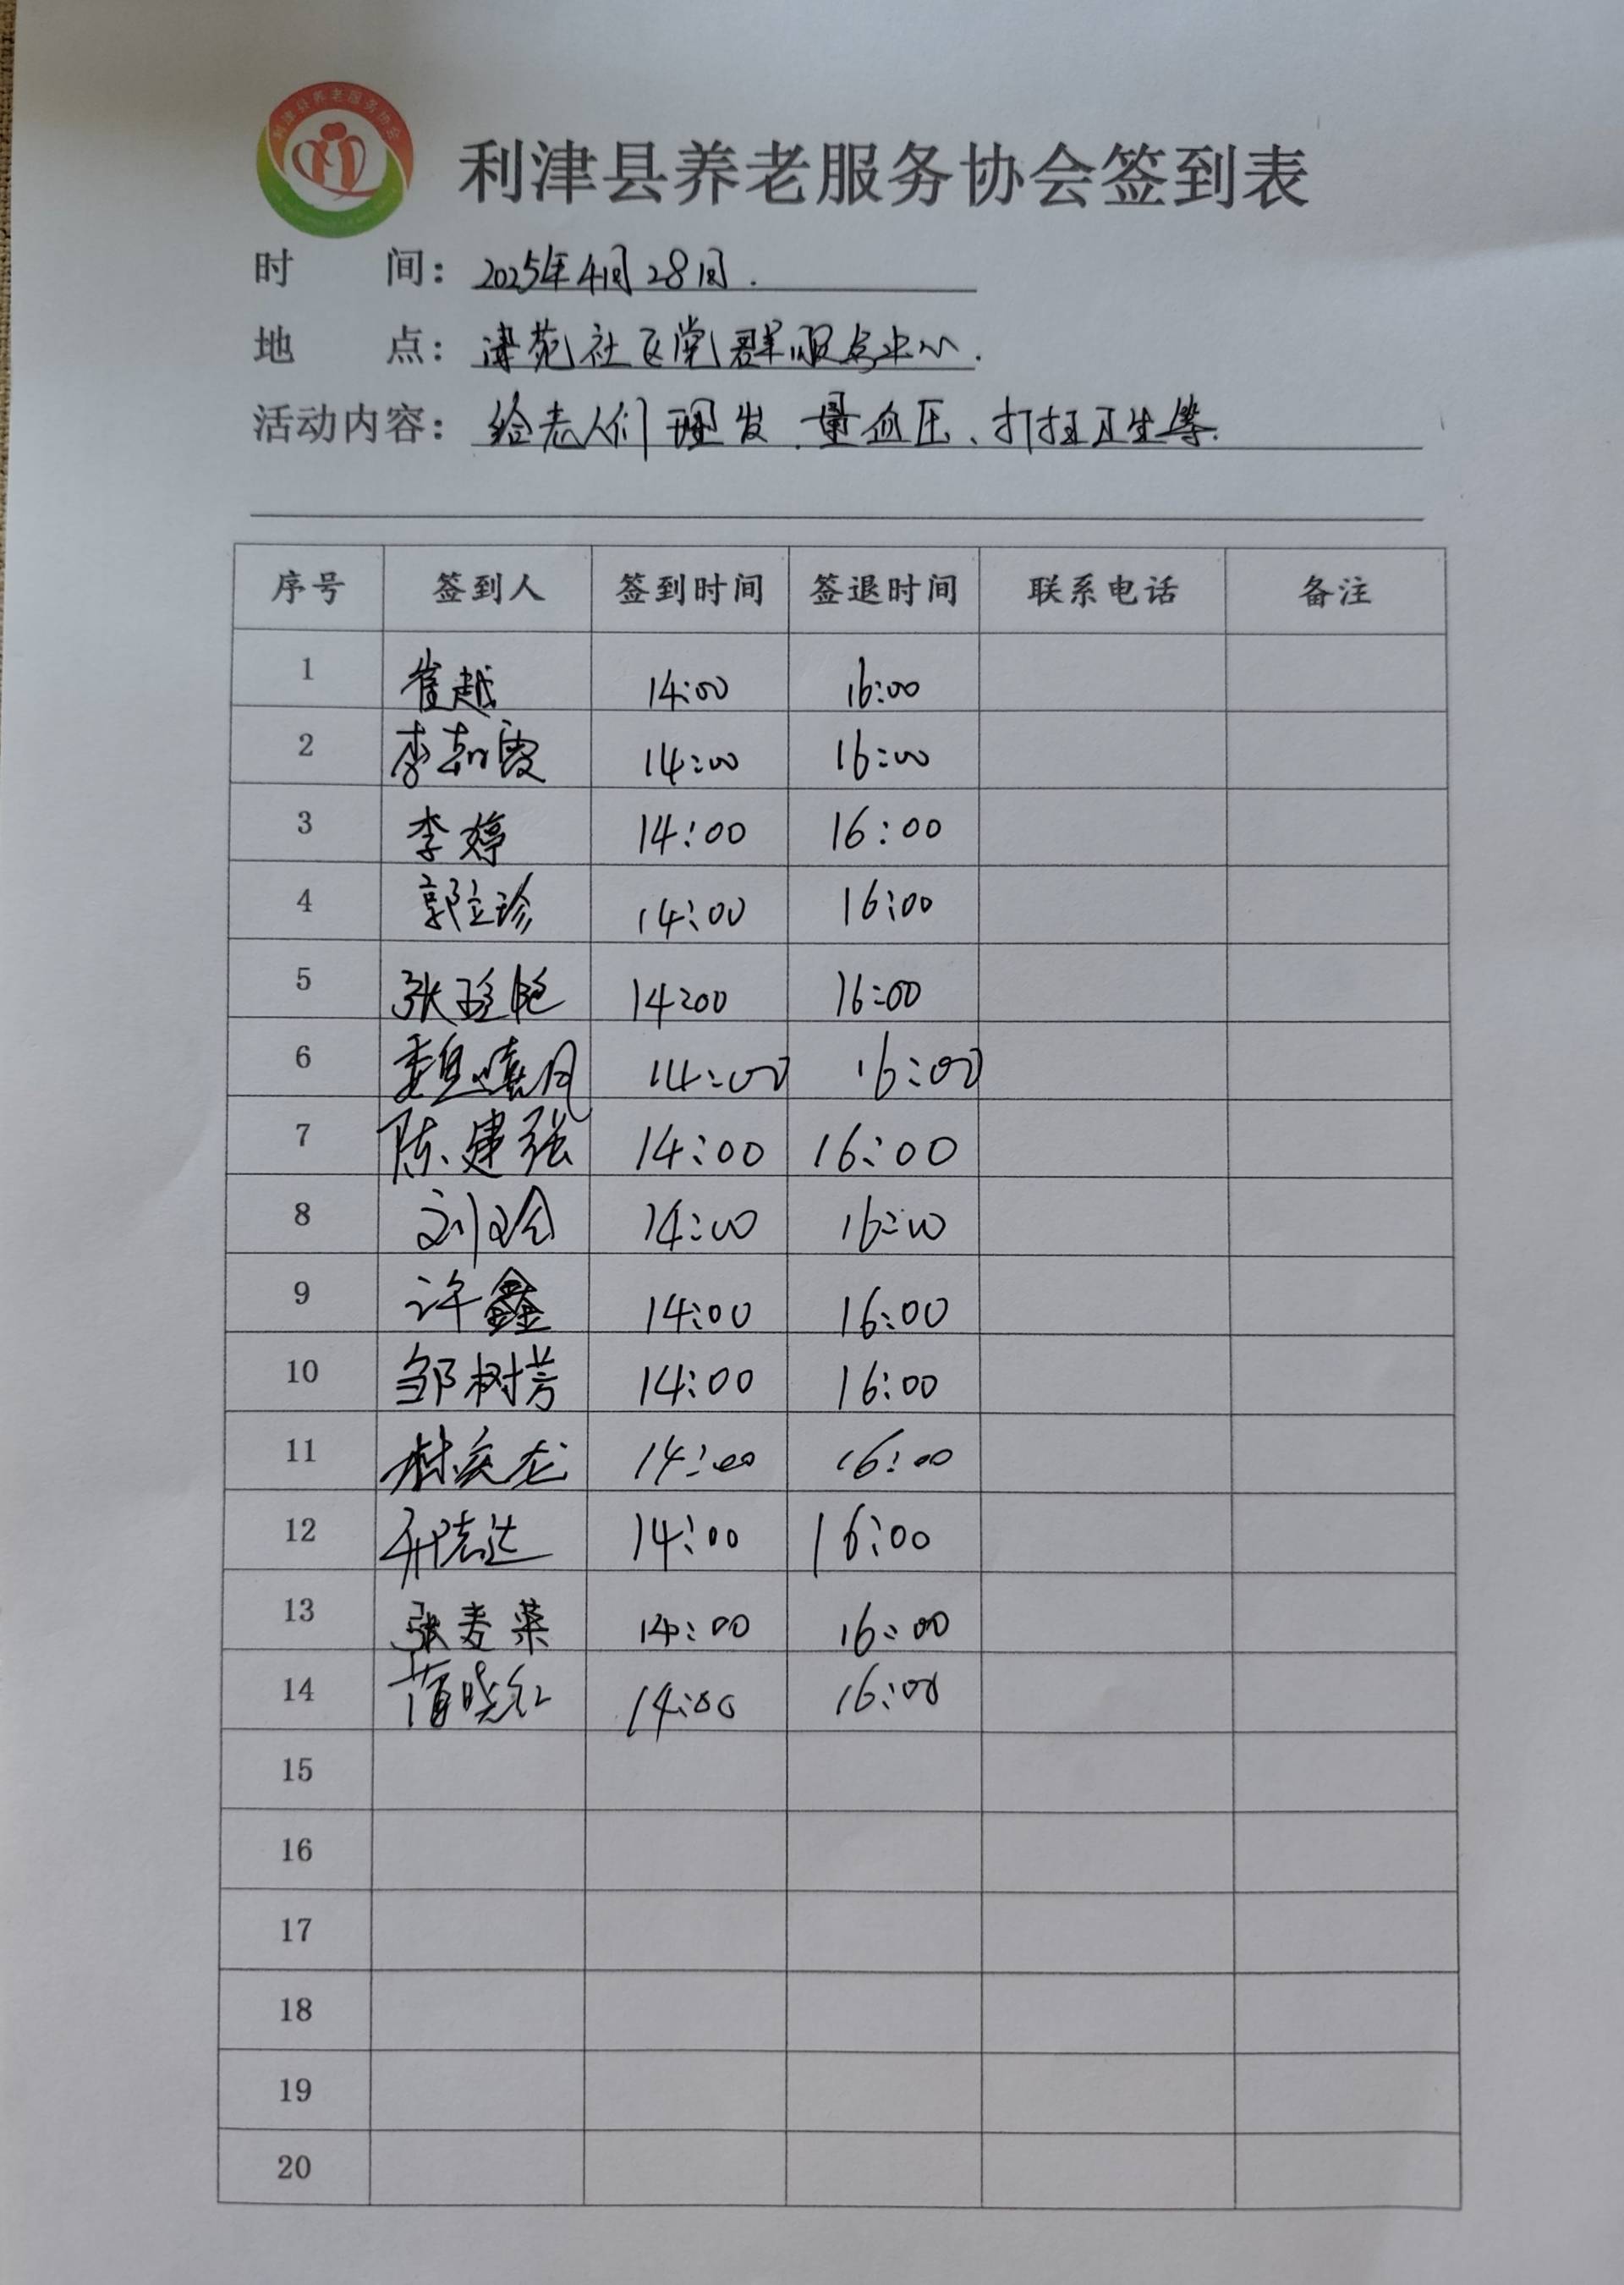 利津县养老服务协会
利津县养老服务协会签到表
时 间: 2025年4月28日.
地 点: 津苑社区党群服务中心.
活动内容: 给老人们理发、量血压、打扫卫生等.
序号 签到人 签到时间 签退时间 联系电话 备注
1 崔越 14:00 16:00
2 李 霞 14:00 16:00
3 李婷 14:00 16:00
4 郭立珍 14:00 16:00
5 张 艳 14:00 16:00
6 14:00 16:00
7 陈建强 14:00 16:00
8 刘玲 14:00 16:00
9 许鑫 14:00 16:00
10 邹树芳 14:00 16:00
11 林庆龙 14:00 16:00
12 志达 14:00 16:00
13 张麦菜 14:00 16:00
14 蒲晓红 14:00 16:00
15
16
17
18
19
20